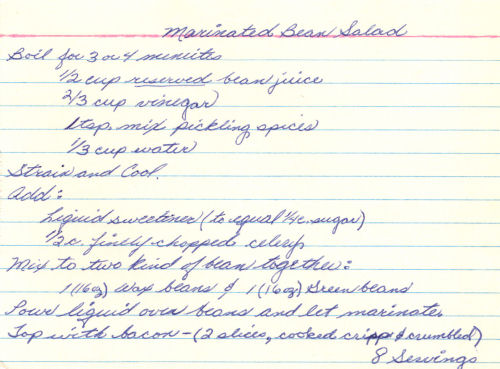 Marinated Bean Salad
Boil for 3 or 4 minutes
1/2 cup reserved bean juice
2/3 cup vinegar
1 tsp. mix pickling spices
1/3 cup water
Strain and Cool.
Add:
Liquid sweetener (to equal 1/4 c. sugar)
1/2 c. finely chopped celery
Mix to two kind of bean together:
1 (16 oz) Wax beans & 1 (16 oz) Green beans
Pour liquid over beans and let marinate.
Top with bacon - (2 slices, cooked crisp & crumbled)
8 Servings